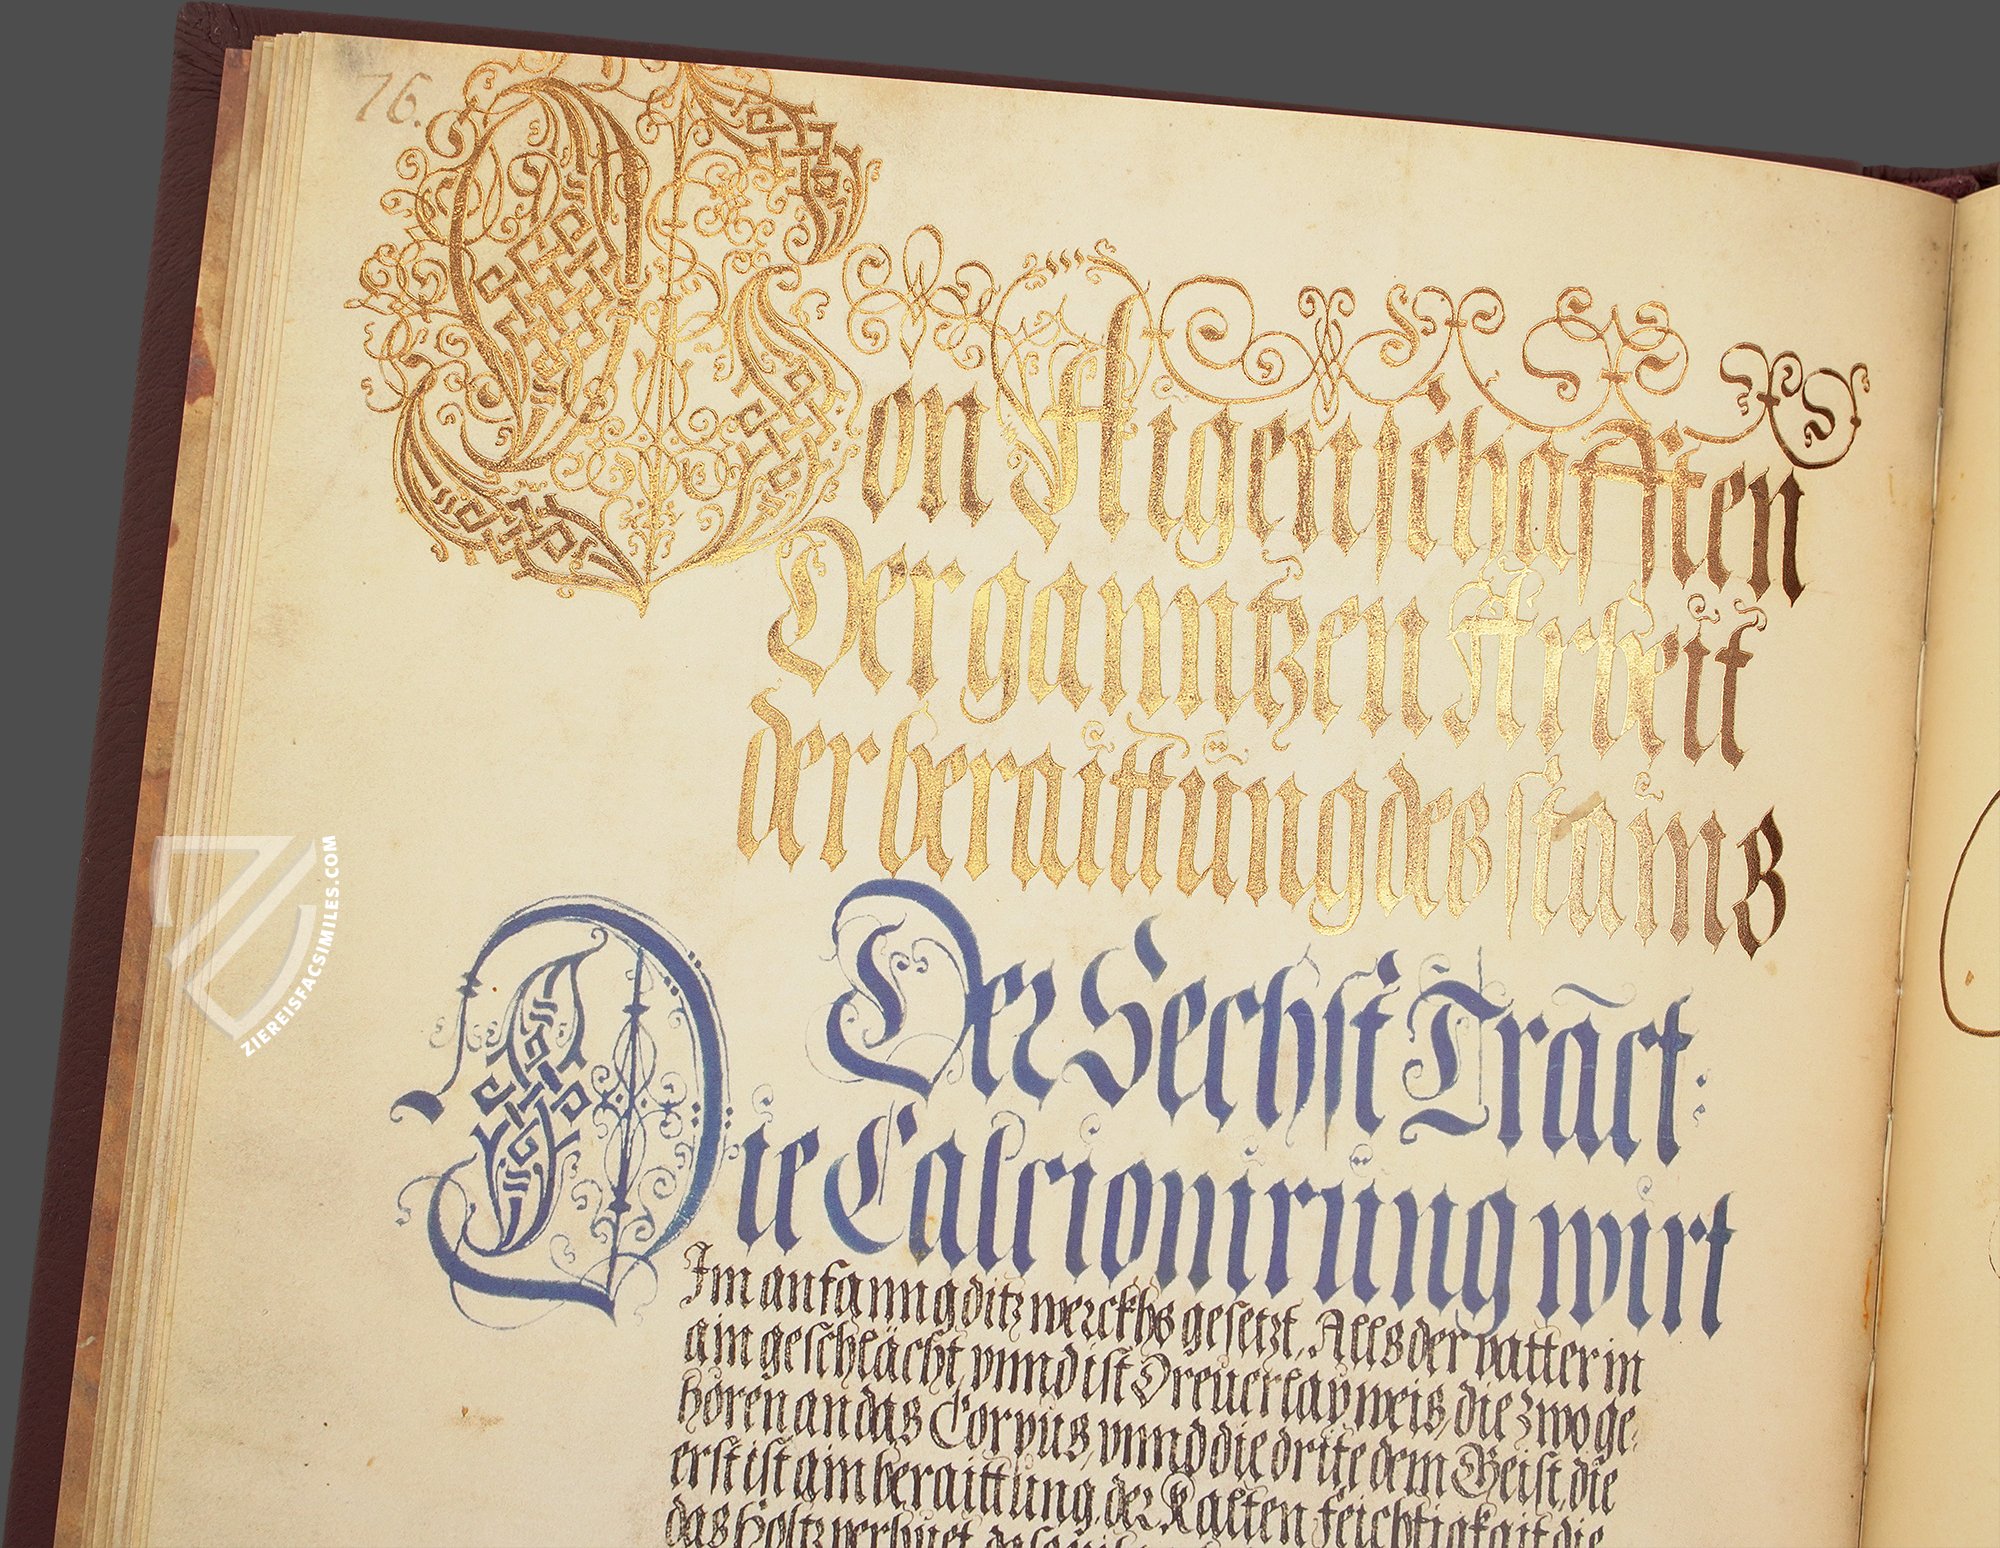 76.
Von Aigenschafften
Der ganntzen Arbeit
der beraittung des stains
Der Sechst Tract:
Die Calcionirung wirt
Im anfanng ditz werckhs gesetzt, Alls der vatter in
ain geschlächt, vnnd ist Dreuerlay weis, die zwo ge:
hören an das Corpus, vnnd die drite dem Geist, die
erst ist ain beraittung, der Kalten feichtigkait die
das Holtz verhuet,
ZIEREISFACSIMILES.COM